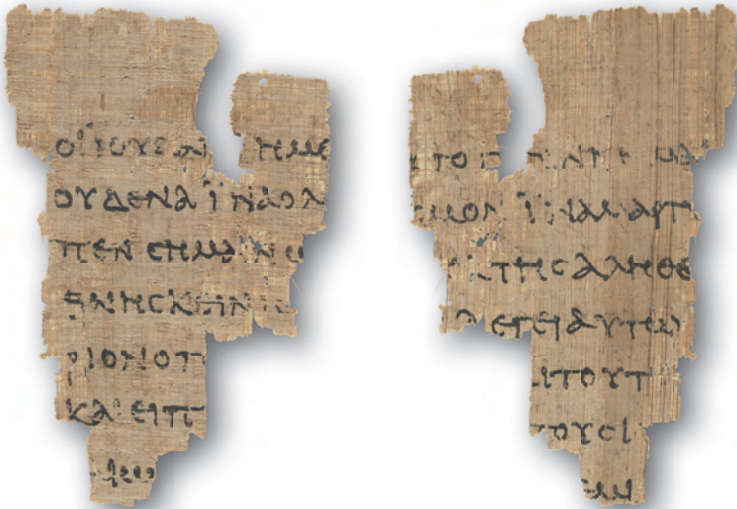 ΟΙ ΙΟΥΔΑΙ ΗΜΕ
ΟΥΔΕΝΑ ΪΝΑ Ο Λ
ΠΕΝ ϹΗΜΑΙΝΩ
ΘΝΗϹΚΕΙΝ
ΡΙΟΝ Ο Π
ΚΑΙ ΕΙΠ
ΤΟ
ϹΜΟΝ ΪΝΑ ΜΑΡΤ
ΤΗϹ ΑΛΗΘΕ
ΛΕΓΕΙ ΑΥΤΩ
ΑΙ ΤΟΥΤ
ΤΟΥϹ Ι